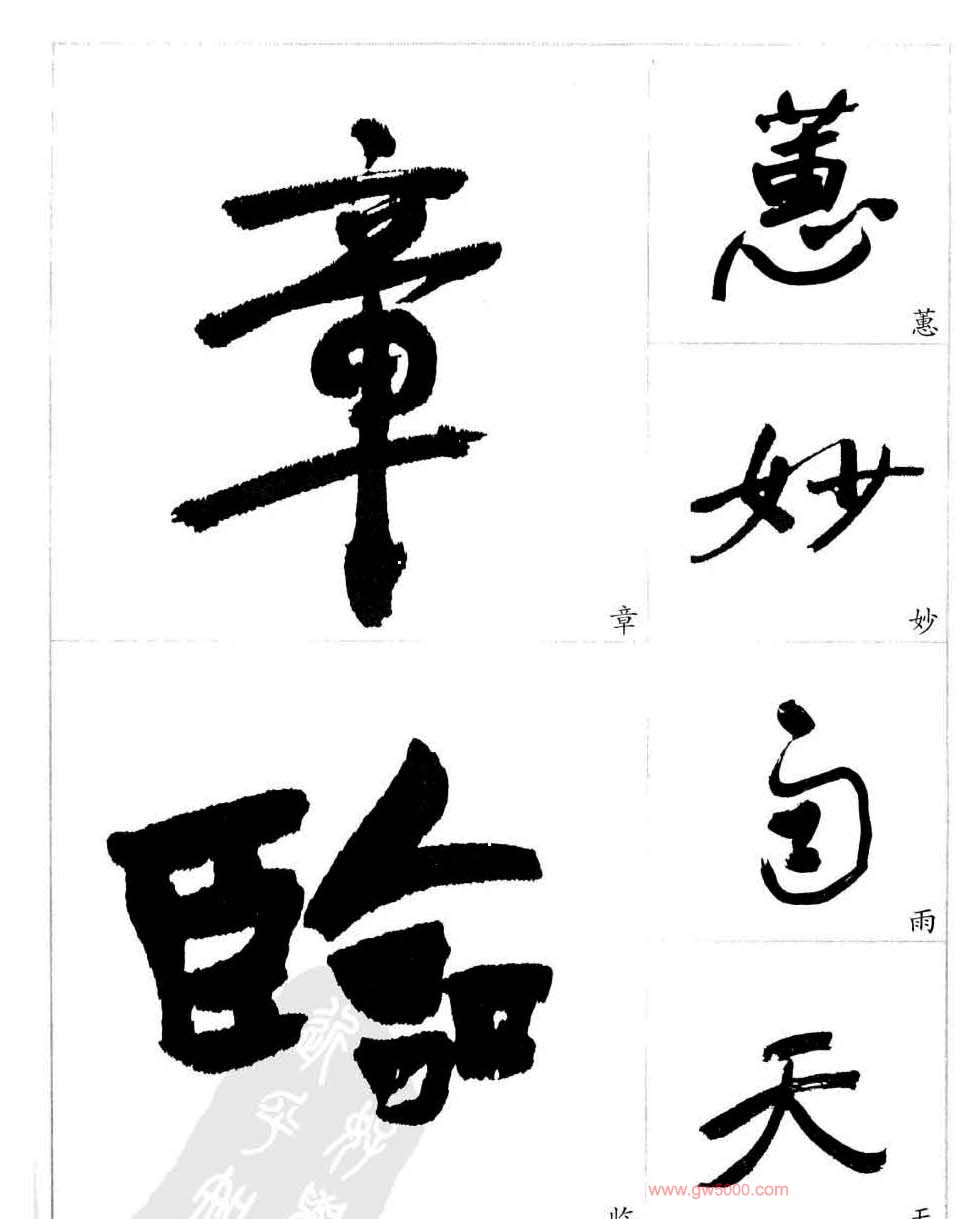 章
章
臨
临
蕙
蕙
妙
妙
雨
雨
天
天
www.gw5000.com